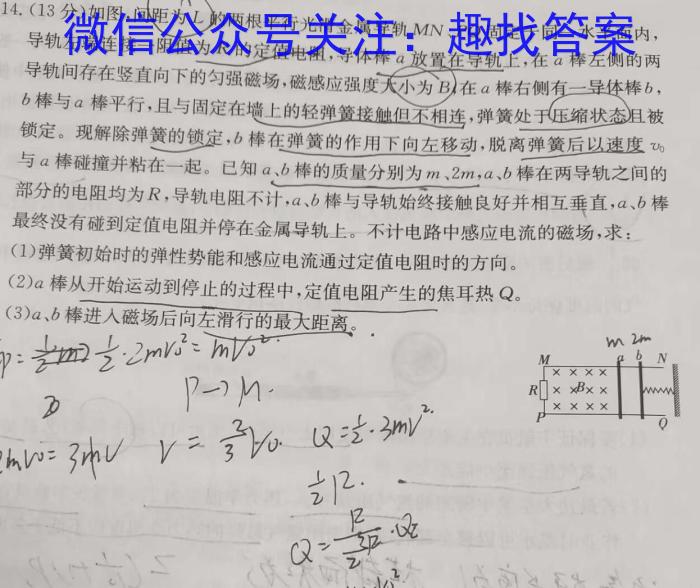 14.(13分)如图,间距为L的两根平行光滑金属导轨MN
微信公众号关注：趣找答案
的定值电阻,导体棒a放置在导轨上,在a棒左侧的两
导轨间存在竖直向下的匀强磁场,磁感应强度大小为B,在a棒右侧有一导体棒b,
b棒与a棒平行,且与固定在墙上的轻弹簧接触但不相连,弹簧处于压缩状态且被
锁定。现解除弹簧的锁定,b棒在弹簧的作用下向左移动,脱离弹簧后以速度v₀
与a棒碰撞并粘在一起。已知a、b棒的质量分别为m、2m,a、b棒在两导轨之间的
部分的电阻均为R,导轨电阻不计,a、b棒与导轨始终接触良好并相互垂直,a、b棒
最终没有碰到定值电阻并停在金属导轨上。不计电路中感应电流的磁场,求:
(1)弹簧初始时的弹性势能和感应电流通过定值电阻时的方向。
(2)a棒从开始运动到停止的过程中,定值电阻产生的焦耳热Q。
(3)a、b棒进入磁场后向左滑行的最大距离。
m 2m
M a b N
R B
P Q
½·2mv₀²=mv₀².
P→M.
mv₀=3mv v=⅔v₀. Q=½·3mv².
½R.